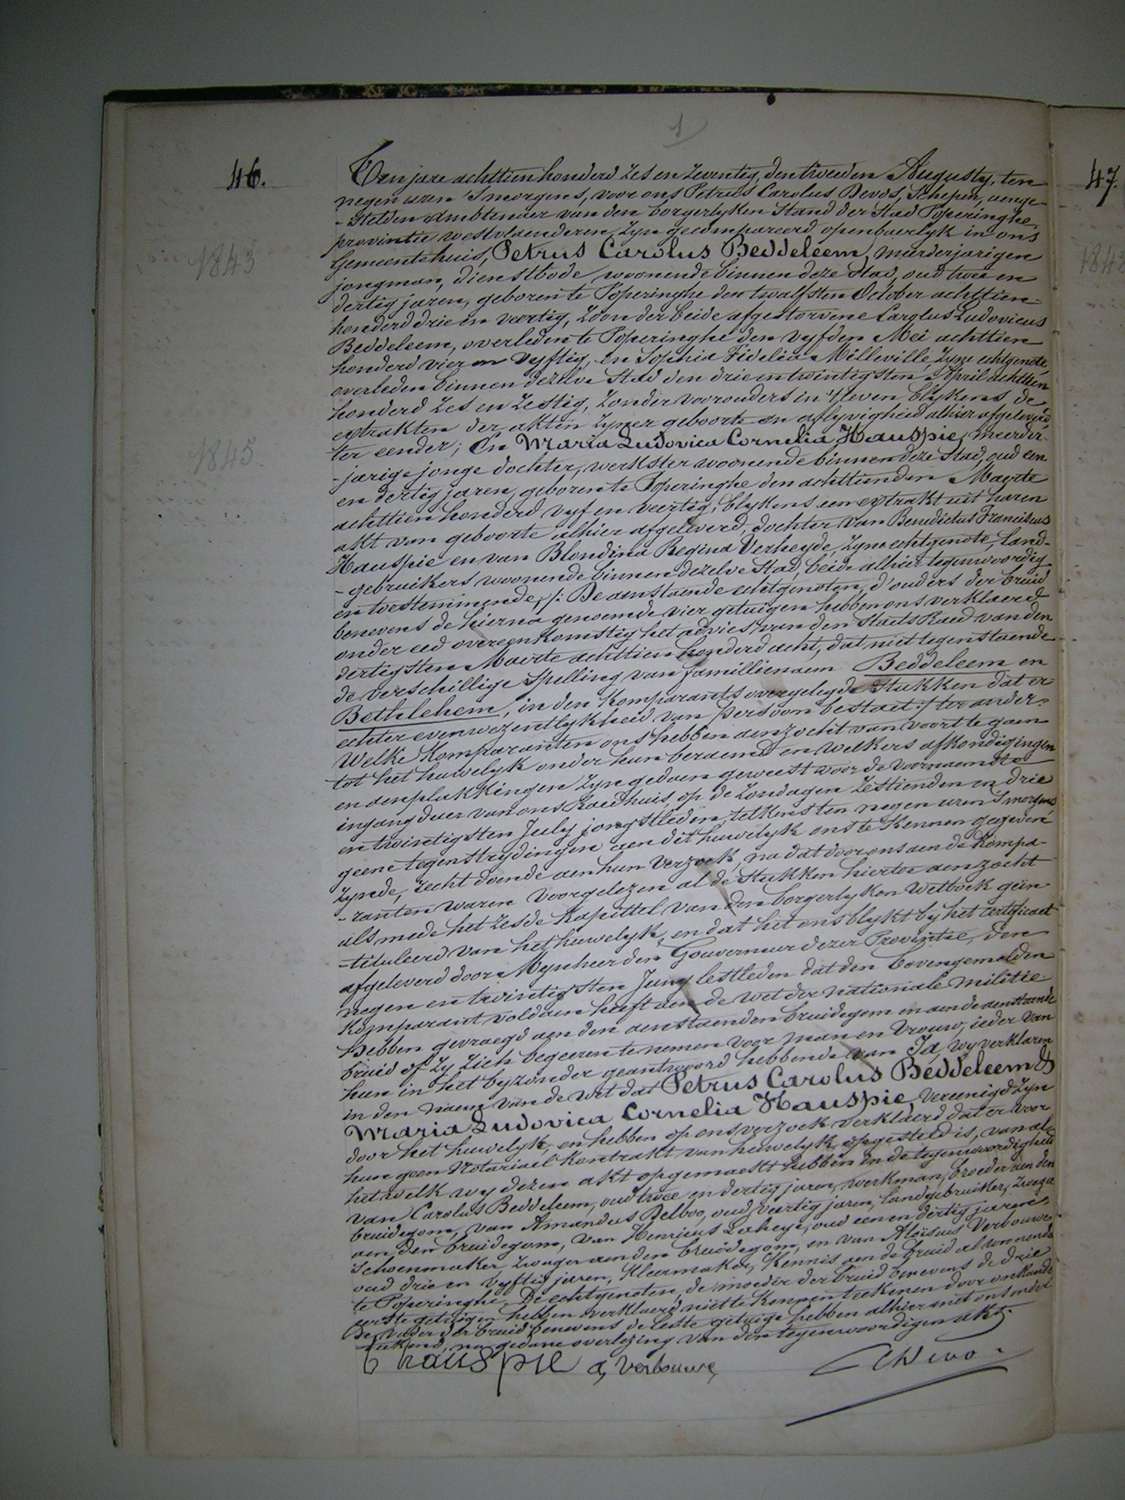 1
46.
47.
1843
1845
1842
Ten jare achttien honderd zes en zeventig, den tweeden Augusty, ten
negen uren 's morgens, voor ons Petrus Carolus Devos, Schepen, aenge-
-stelden Ambtenaer van den borgerlyken Stand der Stad Poperinghe,
provintie westvlaenderen, zyn gecompareerd openbaerlyk in ons
Gemeentehuis, Petrus Carolus Beddeleem, meerderjarigen
jongman, dienstbode, woonende binnen deze Stad, oud twee en
dertig jaren, geboren te Poperinghe den twalfsten October achttien-
honderd drie en veertig, zoon der beide afgestorvene Carolus Ludovicus
Beddeleem, overleden te Poperinghe den vyfden Mei achttien
honderd vier en vyftig, en Sophia Fidelia Milleville zyne echtgenote,
overleden binnen dezelve Stad den drie en twintigsten April achttien
honderd zes en zestig, zonder voorouders in 't leven blykens de
extrakten der akten zyner geboorte en aflyvigheid alhier afgeleverd
ter eender; En Maria Ludovica Cornelia Hauspie, meerder-
-jarige jonge dochter, werkster woonende binnen deze Stad, oud een
en dertig jaren, geboren te Poperinghe den achttienden Maerte
achttien honderd vyf en veertig, blykens een extrakt uit haren
akt van geboorte alhier afgeleverd, dochter van Benedictus Franciscus
Hauspie en van Blondina Regina Verheyde, zyne echtgenote, land-
-gebruikers woonende binnen dezelve Stad, beide alhier tegenwoordig
en toestemmende, /: De aenstaende echtgenoten, d'ouders der bruid
benevens de hierna genoemde vier getuigen hebben ons verklaerd
onder eed overeenkomstig het advies van den Staets Raed van den
dertigsten Maerte achttien honderd acht, dat niettegenstaende
de verschillige spelling van familienaem Beddeleem en
Bethlehem, in den Komparants overgelegde stukken dat er
echter evenwezentlykheid van persoon bestaet :/ ter ander.
Welke Komparanten ons hebben aenzocht van voort te gaen
tot het huwelyk onder hun beraemd en welkers afkondigingen
en aenplakkingen zyn gedaen geweest voor de voornaemste
ingang duer van ons Raedhuis, op de zondagen zestienden en drie
en twintigsten July jongstleden, telkens ten negen uren 's morgens
geene tegenstrydingen aen dit huwelyk ons te kennen gegeven
zynde, recht doende aen hun verzoek, na dat door ons aen de Kompa-
-ranten waren voorgelezen al de stukken hiertoe aenzocht
als mede het zesde Kapittel van den borgerlyken Wetboek gein-
-tituleerd van het huwelyk, en dat het ons blykt by het certificaet
afgeleverd door Mynheer den Gouverneur dezer Provintie, den
negen en twintigsten Juny lestleden dat den bovengemelden
Komparant voldaen heeft aen de wet der nationale militie
Hebben gevraegd aen den aenstaenden bruidegom en aen de aenstaende
bruid of zy zich begeeren te nemen voor man en vrouw, ieder van
hun in het byzonder geantwoord hebbende van Ja, wy verklaren
in den naem van de wet dat Petrus Carolus Beddeleem &
Maria Ludovica Cornelia Hauspie, vereenigd zyn
door het huwelyk, en hebben op ons verzoek verklaerd dat er voor
hun geen Notariael Kontrakt van huwelyk opgesteld is, van al
het welk wy dezen akt opgemaekt hebben in de tegenwoordigheid
van Carolus Beddeleem, oud twee en dertig jaren, werkman, broeder aen den
bruidegom, van Amandus Delboo, oud veertig jaren, landgebruiker, zwager
aen den bruidegom, van Henricus Laheye, oud een en dertig jaren
Schoenmaker, zwager aen den bruidegom, en van Aloïsius Verbouwe
oud drie en vyftig jaren, Kleermaker, Kennis aen de bruid al woonende
te Poperinghe. De echtgenoten, de moeder der bruid benevens de drie
eerste getuigen hebben verklaerd niet te konnen teekenen door onkunde
De vader der bruid benevens de leste getuige hebben alhier met ons onder-
teekend, na gedane overlezing van den tegenwoordigen akt.
b hauspie a, verbouwe,